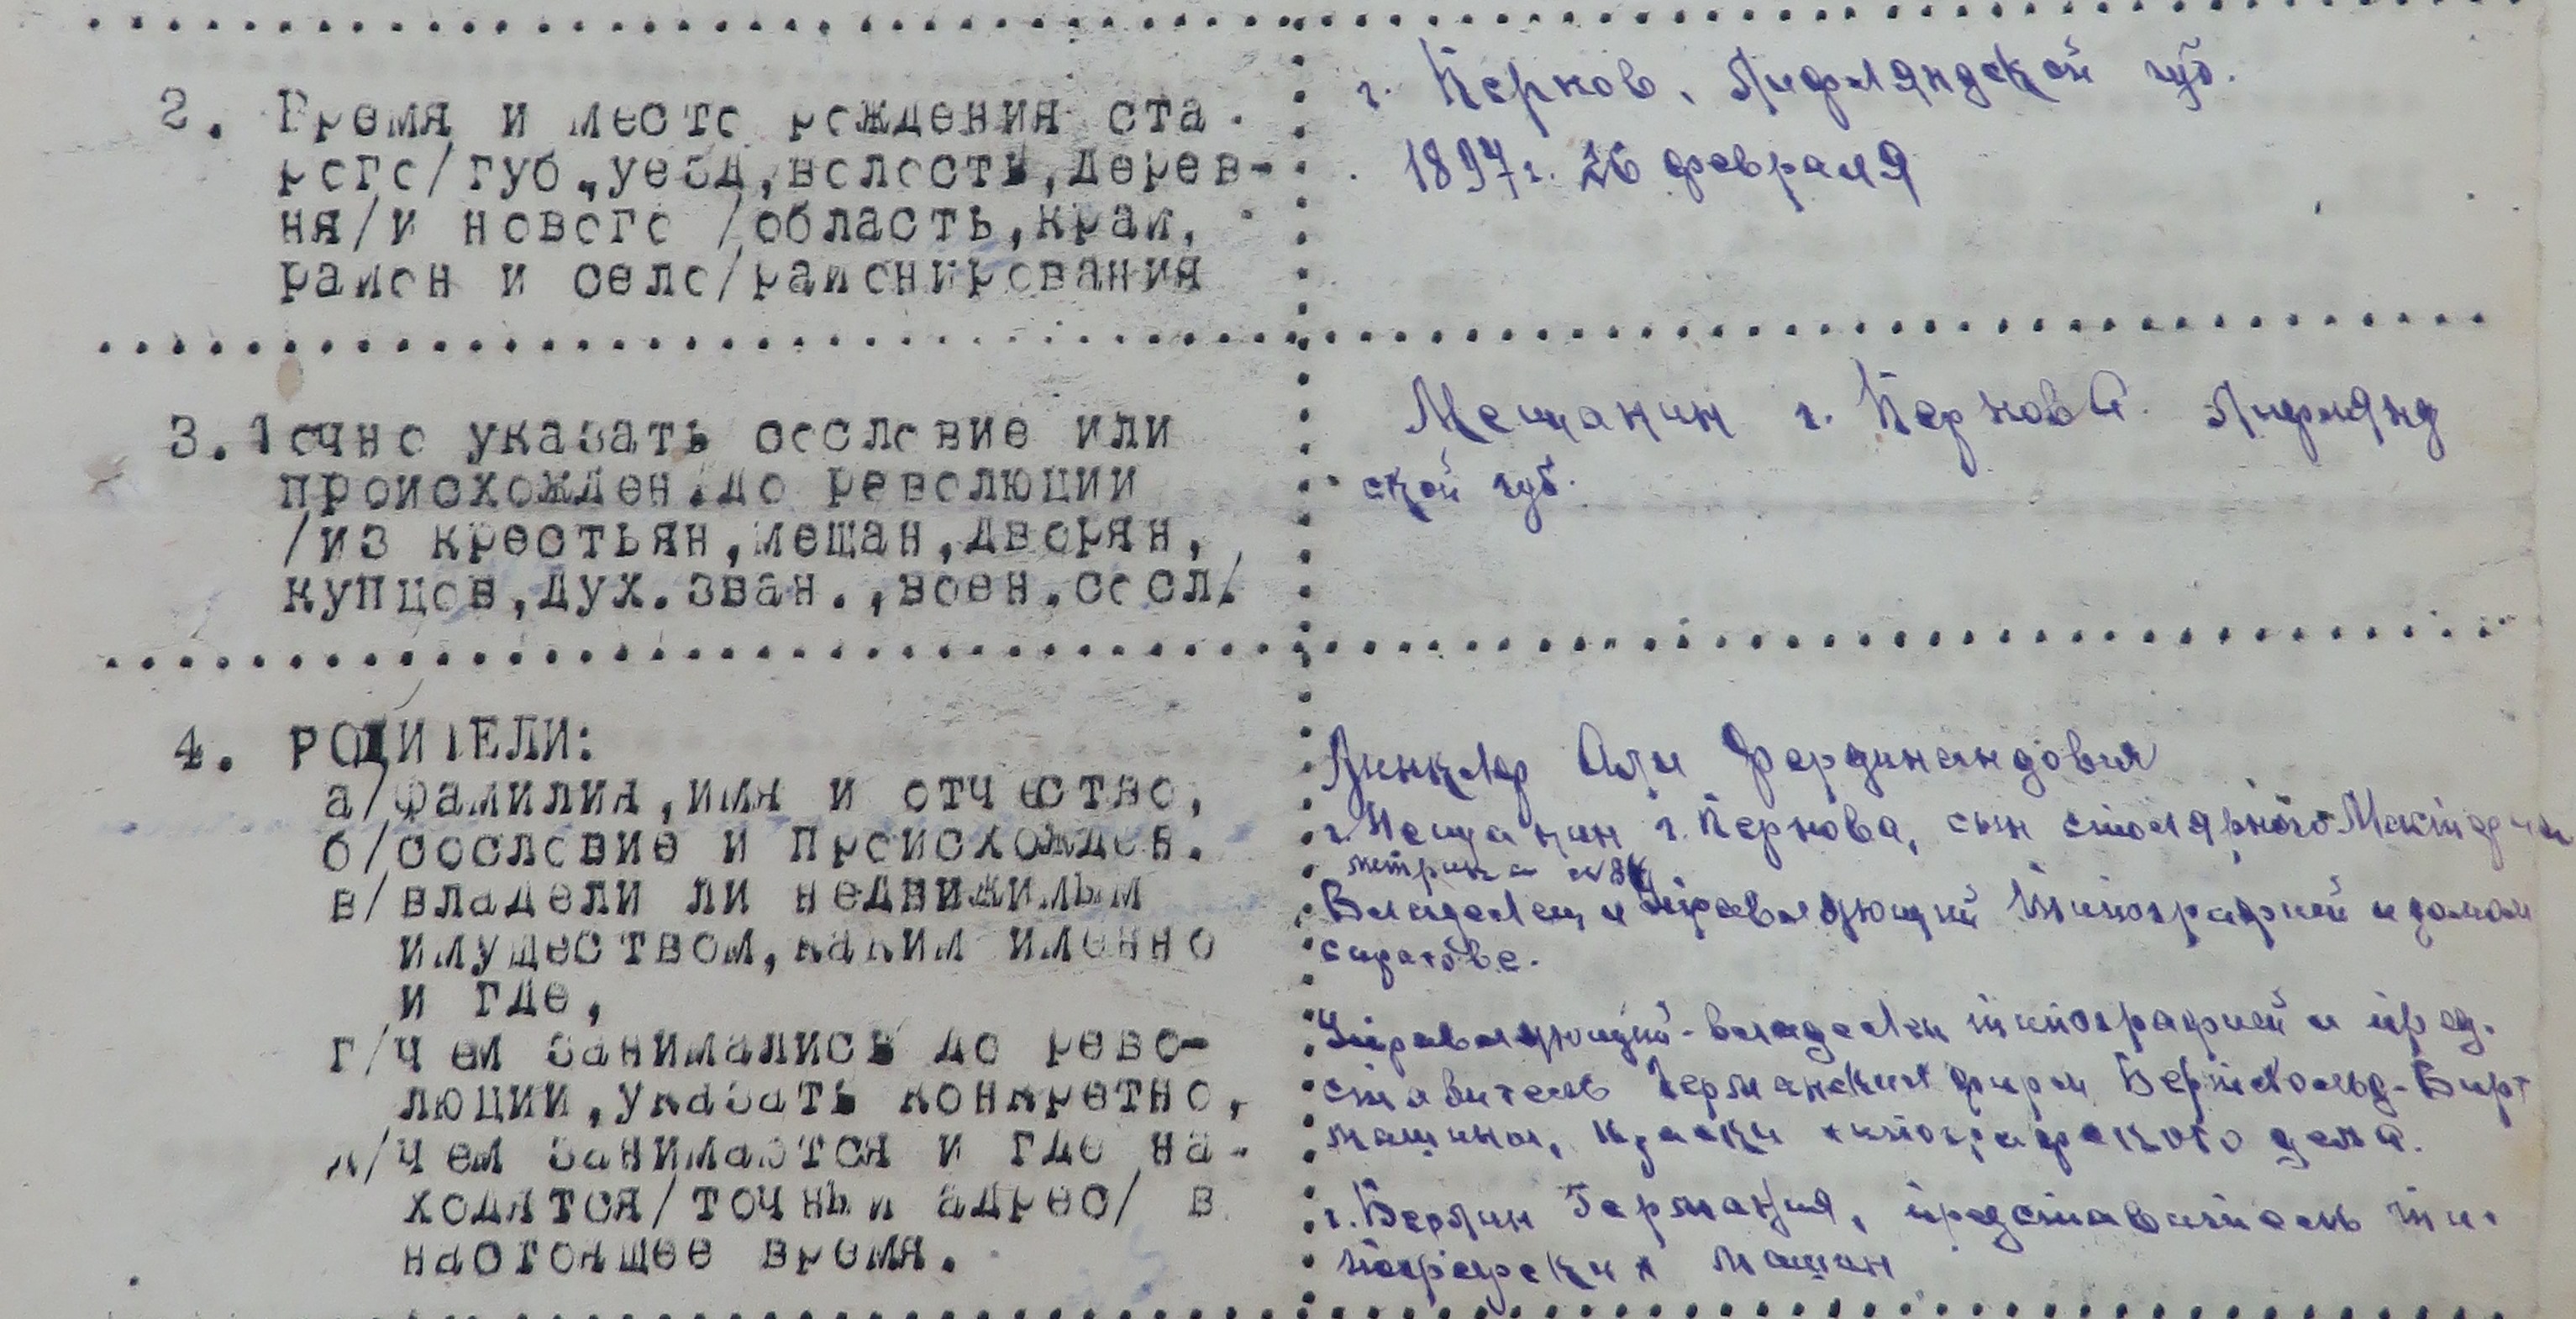 2. Время и место рождения ста-
рого/губ.,уезд,волость,дерев-
ня/и нового /область,край,
район и село/районирования
г. Пернов, Лифляндской губ.
1897 г. 26 февраля
3. Точно указать сословие или
происхожден.до революции
/из крестьян,мещан,дворян,
купцов,дух.зван.,воен.сосл/
Мещанин г. Пернова Лифлянд
ской губ.
4. РОДИТЕЛИ:
а/фамилия,имя и отчество,
б/сословие и происхожден.
в/владели ли недвижимым
имуществом,каким именно
и где,
г/чем занимались до рево-
люции,указать конкретно,
д/чем занимаются и где на-
ходятся/точный адрес/ в
настоящее время.
Фердинандович
Мещанин г. Пернова, сын столярного
метрика
Владелец и Управляющий типографией и домом
Саратове.
Управляющий-владелец типографией и пред-
ставитель Германских фирм
машины, краски типографского дела.
г. Берлин Германия, представитель ти-
пографских машин